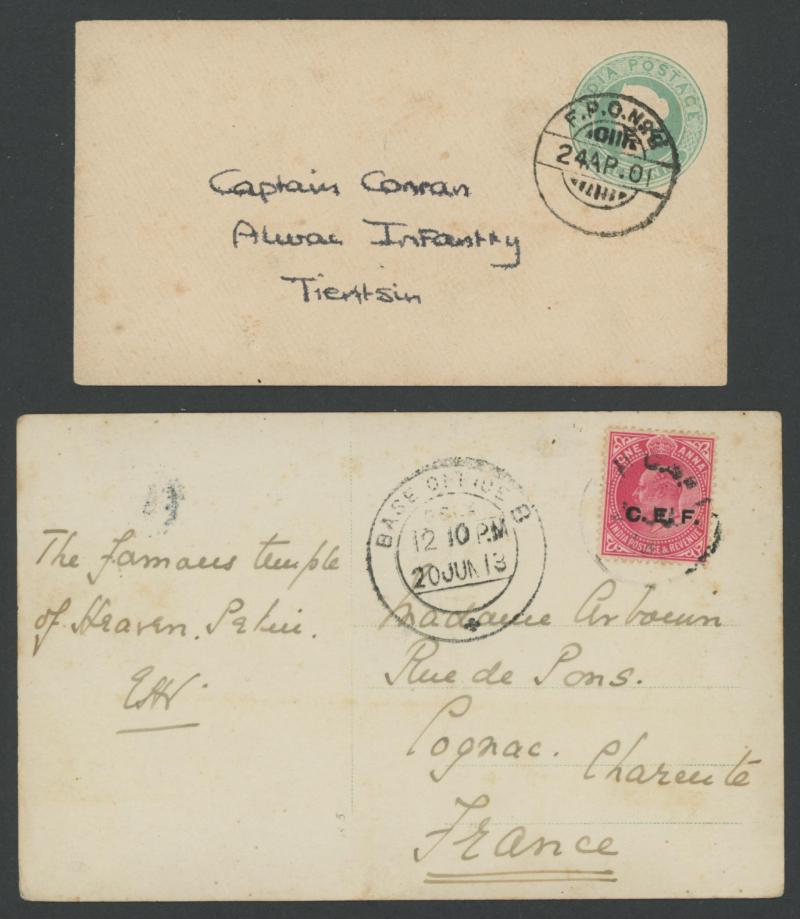 INDIA POSTAGE
F.P.O. No.
24 AP. 01
Captain Conran
Alwac Infantry
Tientsin
ONE ANNA
C.E.F.
INDIA POSTAGE & REVENUE
BASE OFFICE B
12 10 PM
20 JUN 13
The famous temple
of Heaven. Pekin.
EHW.
Madame Arbouin
Rue de Pons.
Cognac. Charente
France